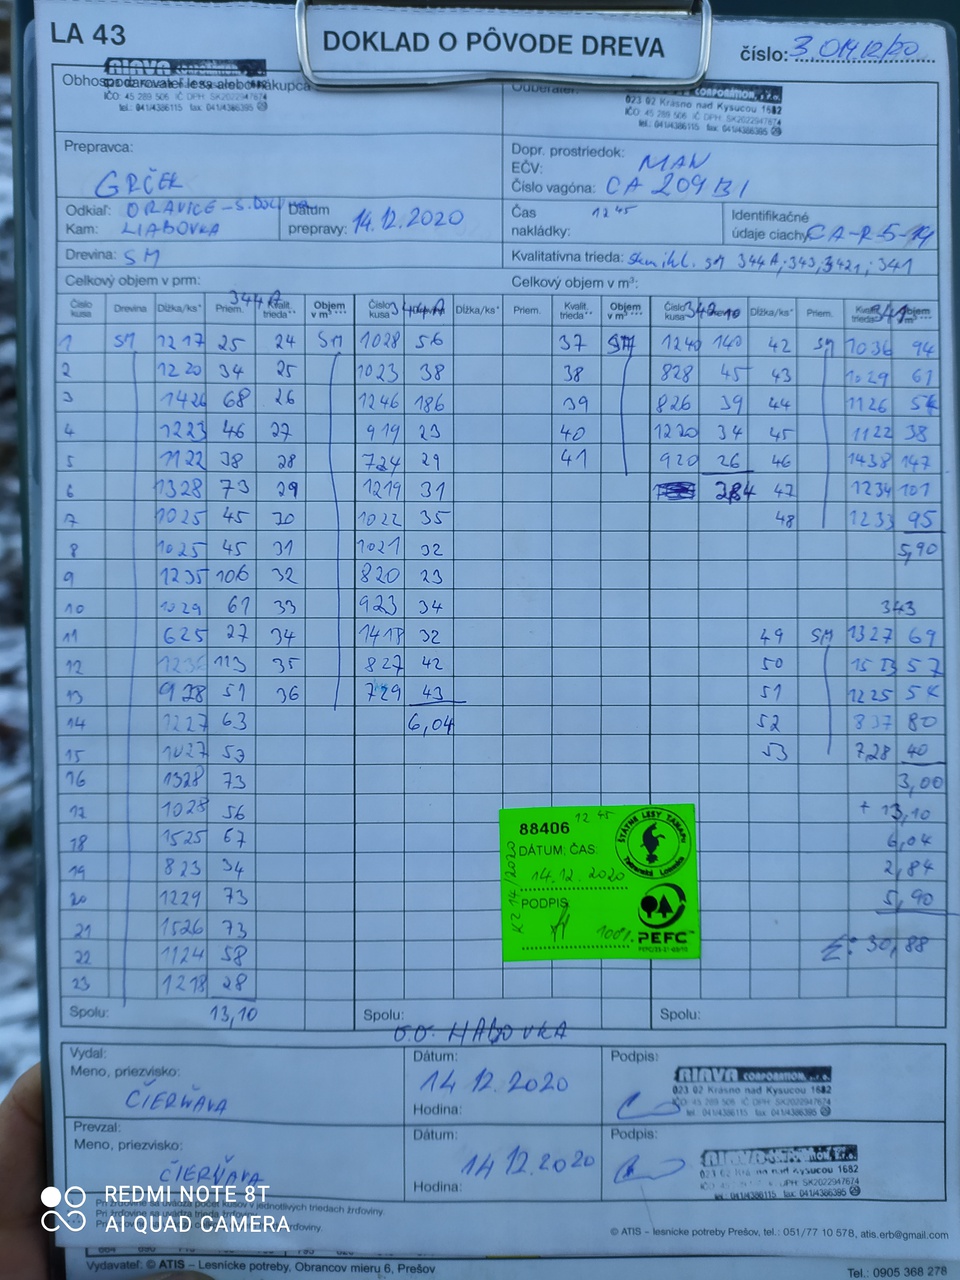 LA 43
DOKLAD O PÔVODE DREVA
číslo:
RIAVA CORPORATION, s.r.o.
Obhospodarovateľ lesa alebo nákupca
IČO: 45 289 506 IČ DPH: SK2022947674
tel.: 041/4386115 fax: 041/4386395
Odberateľ:
CORPORATION, s.r.o.
023 02 Krásno nad Kysucou 1682
IČO: 45 289 506 IČ DPH: SK2022947674
tel.: 041/4386115 fax: 041/4386395
Prepravca:
GRČEK
Dopr. prostriedok: MAN
EČV:
Číslo vagóna: CA 209 BI
Odkiaľ: ORAVICE
Kam:
Dátum
prepravy: 14.12.2020
Čas 12 45
nakládky:
Identifikačné
údaje ciachy: CA-R-5-14
Drevina: SM
Kvalitatívna trieda: SM 344A; 343; 342; 341
Celkový objem v prm:
Celkový objem v m³:
344A
Číslo kusa Drevina Dĺžka/ks* Priem. Kvalit. trieda** Objem v m³***
Číslo kusa Dĺžka/ks* Priem. Kvalit. trieda** Objem v m³***
Číslo kusa Dĺžka/ks* Priem. Objem
1 SM 1217 25 24 SM 1028 56 37 SM 1240 140 42 SM 1036 94
2 1220 34 25 1023 38 38 828 45 43 1029 61
3 1426 68 26 1246 186 39 826 39 44 1126 54
4 1223 46 27 919 23 40 1220 34 45 1122 38
5 1122 38 28 724 29 41 920 26 46 1438 147
6 1328 73 29 1219 31 2,84 47 1234 101
7 1025 45 30 1022 35 48 1233 95
8 1025 45 31 1021 32 5,90
9 1235 106 32 820 23
10 1029 61 33 923 34 343
11 625 27 34 1418 32 49 SM 1327 69
12 113 35 827 42 50 57
13 928 51 36 729 43 51 1225 54
14 1227 63 6,04 52 837 80
15 1027 53 53 728 40
16 1328 73 3,00
17 1028 56 + 13,10
18 1525 67 6,04
19 823 34 2,84
20 1229 73 5,90
21 1526 73
22 1124 58 Σ: 30,88
23 1218 28
88406
12 45
ŠTÁTNE LESY TANAPU
Tatranská Lomnica
DÁTUM: ČAS:
14.12.2020
PODPIS
100%
PEFC
KZ 14/2020
Spolu: 13,10
Spolu:
Spolu:
O.O. HABOVKA
Vydal:
Meno, priezvisko:
ČIERŇAVA
Dátum:
14.12.2020
Hodina:
Podpis:
RIAVA CORPORATION, s.r.o.
023 02 Krásno nad Kysucou 1682
IČO: 45 289 506 IČ DPH: SK2022947674
tel.: 041/4386115 fax: 041/4386395
Prevzal:
Meno, priezvisko:
ČIERŇAVA
Dátum:
14.12.2020
Hodina:
Podpis:
RIAVA CORPORATION, s.r.o.
023 02 Krásno nad Kysucou 1682
IČ DPH: SK2022947674
tel.: 041/4386115 fax: 041/4386395
REDMI NOTE 8T
AI QUAD CAMERA
© ATIS – lesnícke potreby Prešov, tel.: 051/77 10 578, atis.erb@gmail.com
Vydavateľ: © ATIS – Lesnícke potreby, Obrancov mieru 6, Prešov
Tel.: 0905 368 278